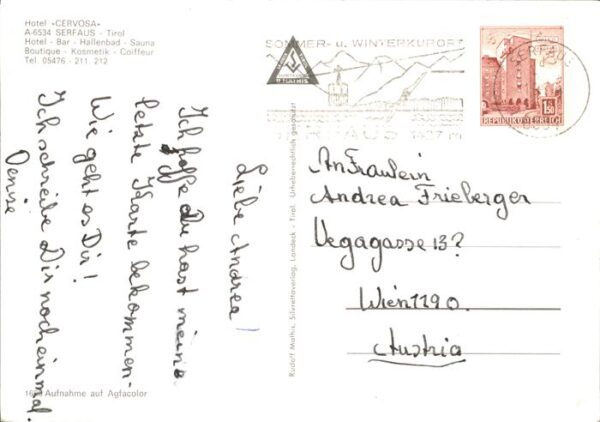 Hotel «CERVOSA»
A-6534 SERFAUS - Tirol
Hotel - Bar - Hallenbad - Sauna
Boutique - Kosmetik - Coiffeur
Tel. 05476 - 211, 212
Liebe Andrea!
Ich hoffe du hast meine
letzte Karte bekommen.
Wie geht es Dir!
Ich schreibe Dir nocheinmal.
Denise
Aufnahme auf Agfacolor
Rudolf Mathis, Silvrettaverlag, Landeck - Tirol. Urheberrechtlich geschützt
SOMMER- u. WINTERKURORT
SERFAUS 1427 m
SERFAUS
1.50
REPUBLIK ÖSTERREICH
An Fräulein
Andrea Frieberger
Vegagasse 13?
Wien 1190.
Austria